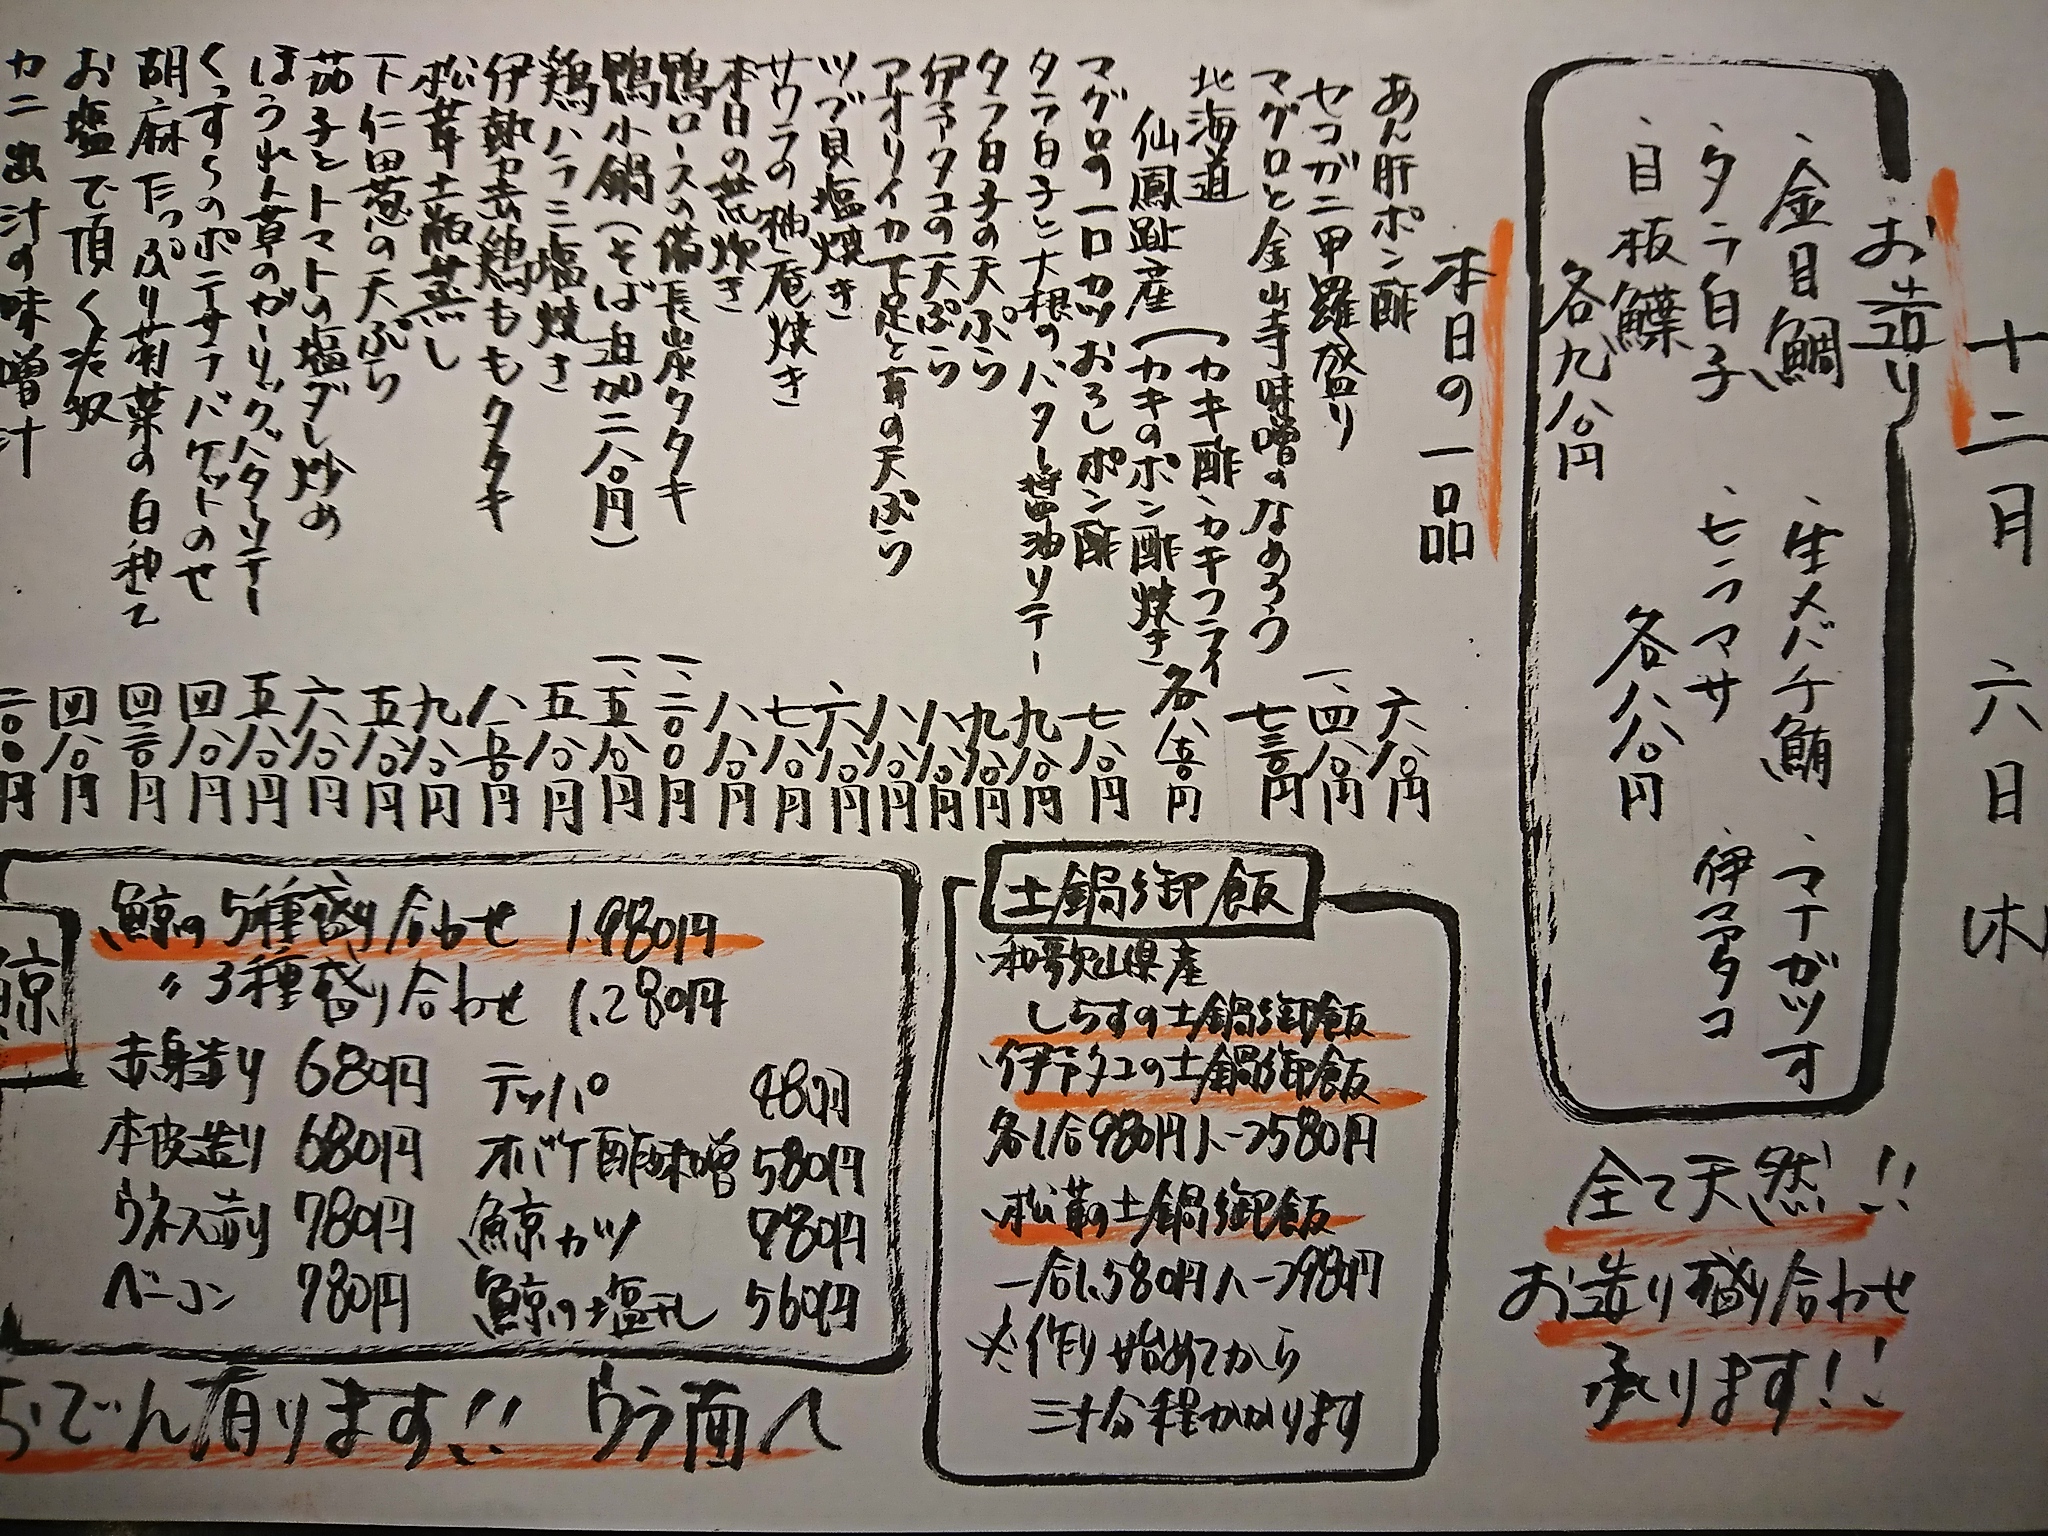 十二月 六日 (水
お造り
・金目鯛 ・生メバチ鮪 ・マナガツオ
・タラ白子 ・ヒラマサ ・伊予マダコ
・目板鰈 各八八〇円
各九八〇円
全て天然!!
お造り盛り合わせ
承ります!!
本日の一品
あん肝ポン酢 六八〇円
セコガニ甲羅盛り 一、四八〇円
マグロと金山寺味噌のなめろう 七三〇円
北海道 (カキ酢・カキフライ
仙鳳趾産 (カキのポン酢焼き 各八五〇円
マグロの一口カツおろしポン酢 七八〇円
タラ白子と大根のバター醤油ソテー 九八〇円
タラ白子の天ぷら 九八〇円
伊予タコの天ぷら 八八〇円
アオリイカ下足と茸の天ぷら 八八〇円
ツブ貝塩焼き 六八〇円
サワラの柚庵焼き 七八〇円
本日の荒炊き 八八〇円
鴨ロースの備長炭タタキ 一、二〇〇円
鴨小鍋(そば追加二八〇円) 一、五八〇円
鶏ハラミ塩焼き 五八〇円
伊勢赤鶏ももタタキ 八五〇円
松茸土瓶蒸し 九八〇円
下仁田葱の天ぷら 五八〇円
茄子とトマトの塩ダレ炒め 六八〇円
ほうれん草のガーリックバターソテー 五八〇円
くっすらのポテサラバケットのせ 四八〇円
胡麻たっぷり菊菜の白和え 四三〇円
お塩で頂く冷奴 四八〇円
カニ出汁の味噌汁 二〇〇円
土鍋御飯
・和歌山県産
しらすの土鍋御飯
・伊予タコの土鍋御飯
各1合980円ハーフ580円
・松茸の土鍋御飯
一合1,580円ハーフ980円
※作り始めてから
三十分程かかります
鯨
鯨の5種盛り合わせ 1,980円
〃3種盛り合わせ 1,280円
赤身造り 680円 テッパ 480円
本皮造り 680円 オバケ酢味噌 580円
ウネス造り 780円 鯨カツ 780円
ベーコン 780円 鯨の塩 560円
おでん有ります!! ウラ面へ